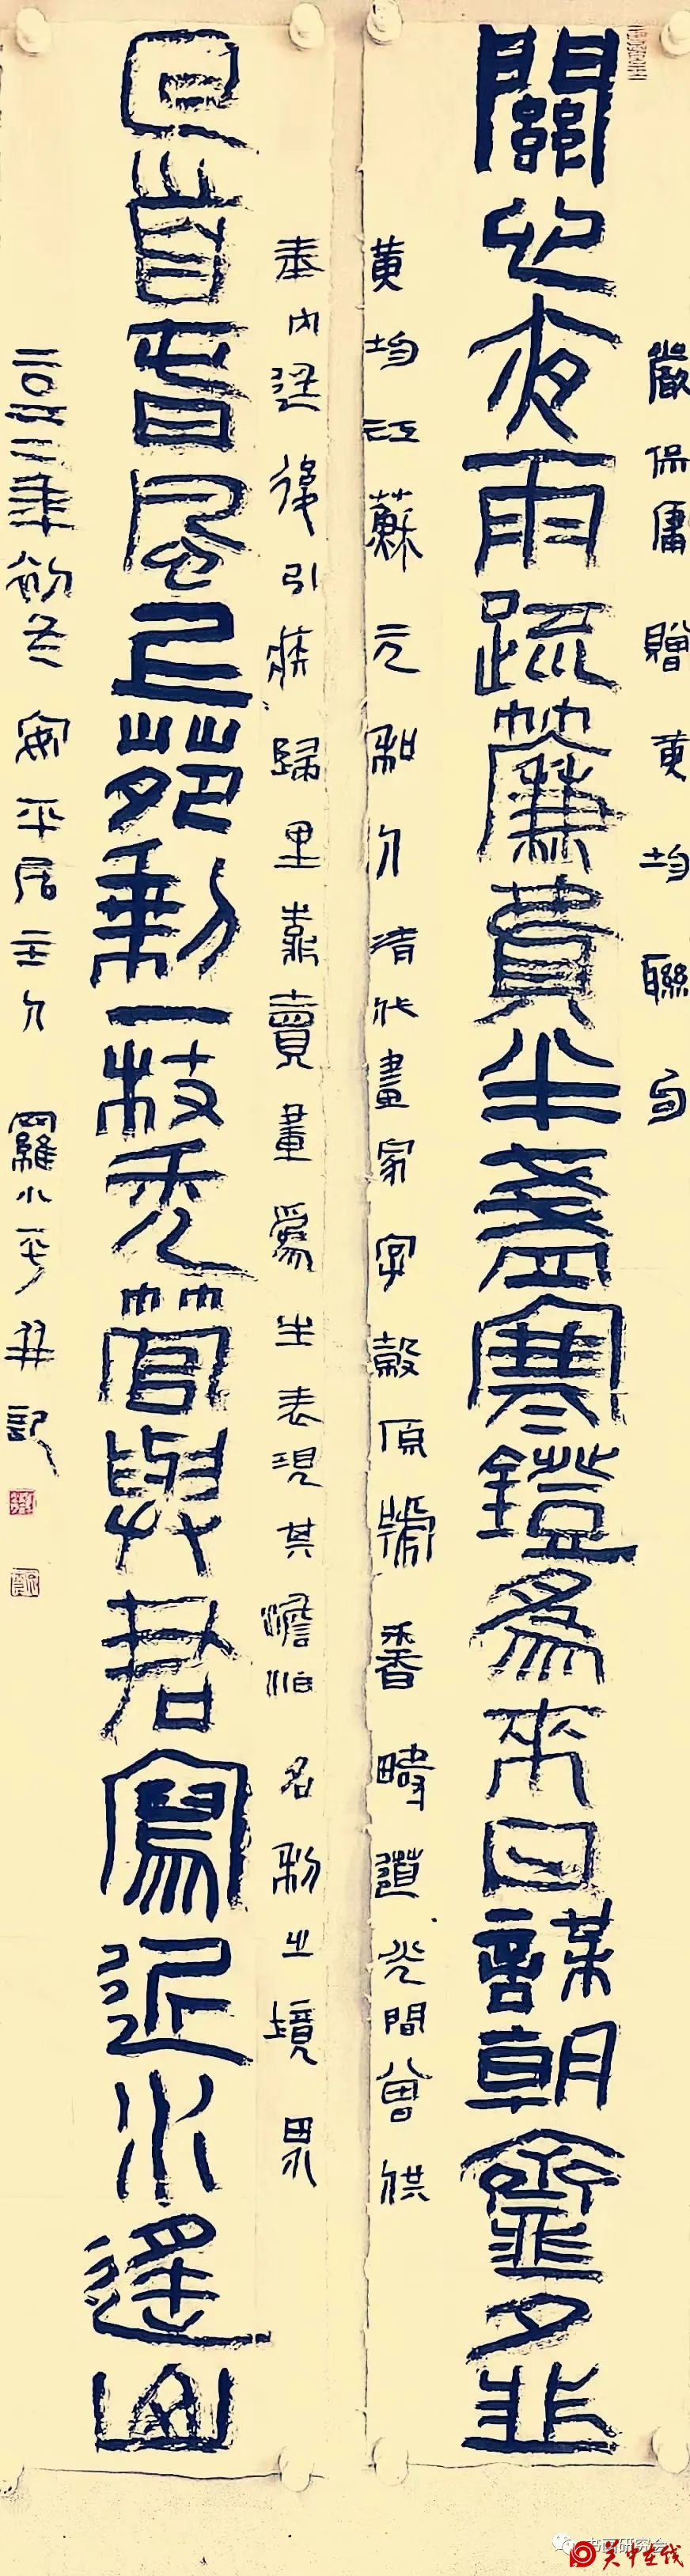 嚴保庸贈黃均聯句
關心夜雨疏簾費半盞寒鐙為來日謀朝齏夕韭
黃均江蘇元和人清代畫家字穀原號香疇道光間曾供
奉內廷後引疾歸里靠賣畫為生表現其澹泊名利之境界
回首春風上苑剩一枝禿管與君寫近水遙山
二〇二二年初冬 安平居主人 羅小平并記
书画研究会
关中在线